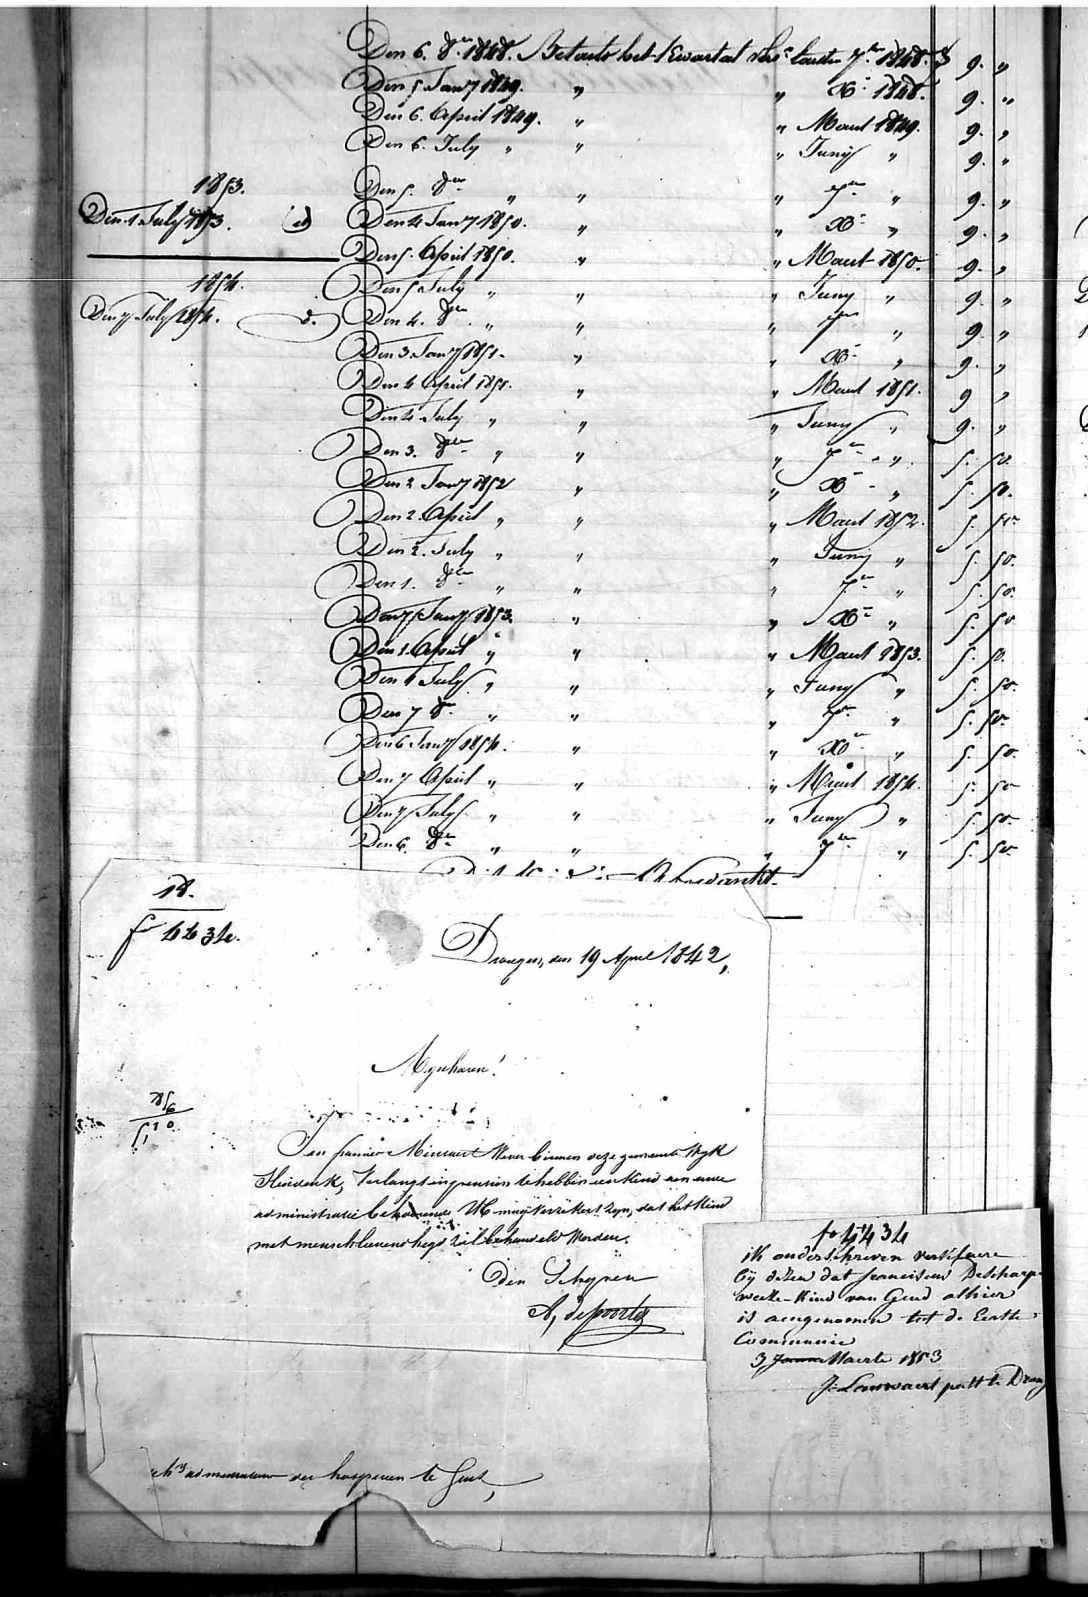 Den 6. 8er 1848. Betaelt het Kwartael 7er 1848. 9. "
Den 5 Jany 1849. " " Xr 1848. 9. "
Den 6. April 1849. " " Maart 1849. 9. "
Den 6. July " " " Juny " 9. "
1853.
Den 5. 8er " " " 7er " 9. "
Den 1 July 1853. Den 4 Jany 1850. " " Xr " 9. "
Den 5. April 1850. " " Maart 1850. 9. "
1854.
Den 5 July " " " Juny " 9. "
Den 7 July 1854. Den 4. 8er " " " 7er " 9. "
Den 3 Jany 1851. " " Xr " 9. "
Den 4 April 1851. " " Maart 1851. 9 "
Den 4 July " " " Juny " 9. "
Den 3. 8er " " " 7er " 5. 50.
Den 2 Jany 1852 " " Xr " 5. 50.
Den 2. April " " " Maart 1852. 5. 50
Den 2. July " " " Juny " 5. 50.
Den 1. 8er " " " 7er " 5. 50.
Den 7 Jany 1853. " " Xr " 5. 50
Den 1 April " " " Maart 1853. 5. 50.
Den 1 July " " " Juny " 5. 50.
Den 7 8r " " " 7er " 5. 50.
Den 6 Jany 1854. " " Xr " 5. 50.
Den 7 April " " " Maart 1854. 5. 50
Den 7 July " " " Juny " 5. 50.
Den 6. 8er " " " 7er " 5. 50
18.
fo 4434.
Drongen, den 19 April 1842,
Mynheeren!
Den Wever binnen deze gemeente Wyk
Verlangt in pensioen te hebben een Kind aen uwe
administratie mag verzekert zyn, dat het Kind
met menschlievendheyd zal behandeld worden.
Den Schepen
fo 4434
ik onderschreven certifieere
by dezen dat franciscus
kind van Gend alhier
is aengenomen tot de Eerste
Communie
3 Maerte 1853
administratie der hospicen te Gent,